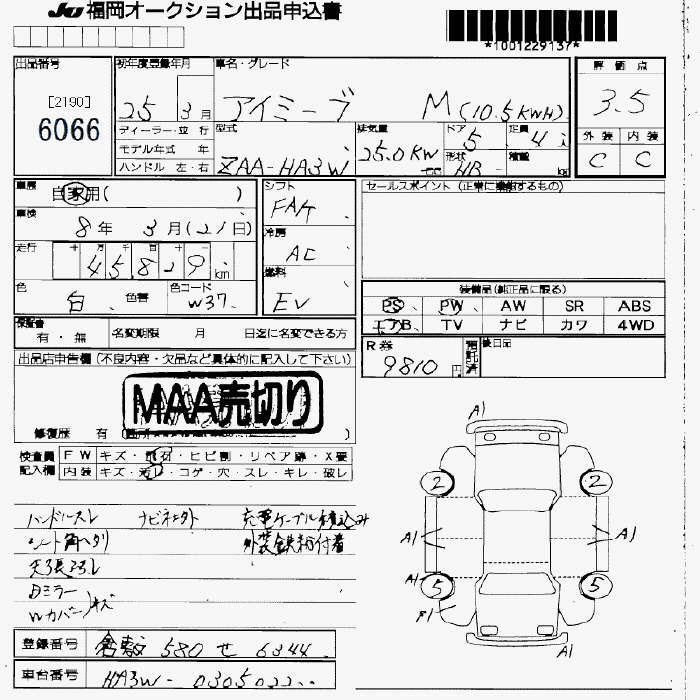 JU 福岡オークション出品申込書
*1001229137*
出品番号
[2190]
6066
初年度登録年月
25 3月
車名・グレード
アイミーブ M(10.5KWH)
評価点
3.5
外装 内装
C C
ディーラー・並行
モデル年式 年
ハンドル 左・右
型式
ZAA-HA3W
排気量
25.0KW
ドア
5
形状
HB
定員
4人
積載
kg
車歴
自家用( )
車検
8年 3月(21日)
走行
十 万 千 百 十
45829km
色
白
色替
色コード
W37
シフト
FAT
冷房
AC
燃料
EV
セールスポイント (正常に機能するもの)
装備品(純正品に限る)
PS PW AW SR ABS
エアB TV ナビ カワ 4WD
保証書
有・無
名変期限 月 日迄に名変できる方
R券
9810円
預託済
後日品
出品店申告欄(不良内容・欠品など具体的に記入して下さい)
MAA売切り
修復歴 有
検査員記入欄
FW キズ・飛石・ヒビ割・リペア跡・X要
内装 キズ・汚レ・コゲ・穴・スレ・キレ・破レ
ハンドルスレ 充電ケーブル積込み
シート角ヘタリ 外装鉄粉付着
天張汚レ
Dミラー
Wカバーキズ
A1
2 2
A1 A1
A1
5 5
F1
A1
登録番号 倉敷 580 せ 6344
車台番号 HA3W-0305022